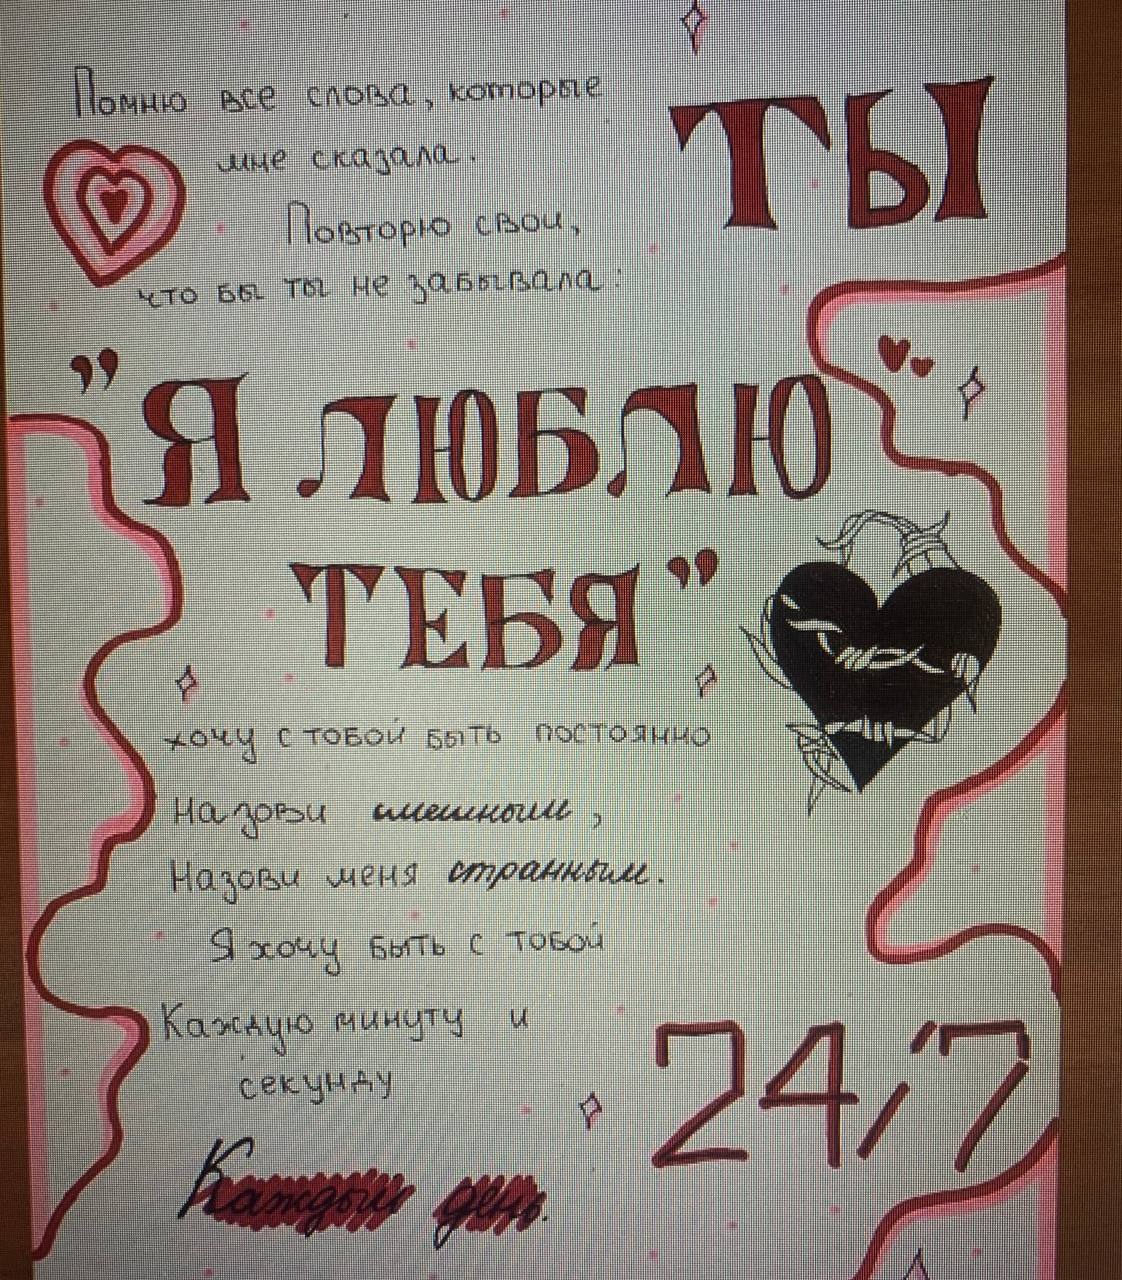 Помню все слова, которые ТЫ
мне сказала.
Повторю свои,
что бы ты не забывала:
"Я ЛЮБЛЮ
ТЕБЯ"
хочу с тобой быть постоянно
Назови смешным,
Назови меня странным.
Я хочу быть с тобой
Каждую минуту и
секунду
24/7
Каждый день.